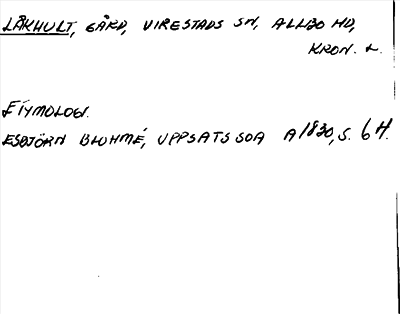 LÅKHULT, GÅRD, VIRESTADS SN, ALLBO HD,
KRON. L.
ETYMOLOGI.
ESBJÖRN BLOHMÉ, UPPSATS SOA A1830, S. 6 ff.